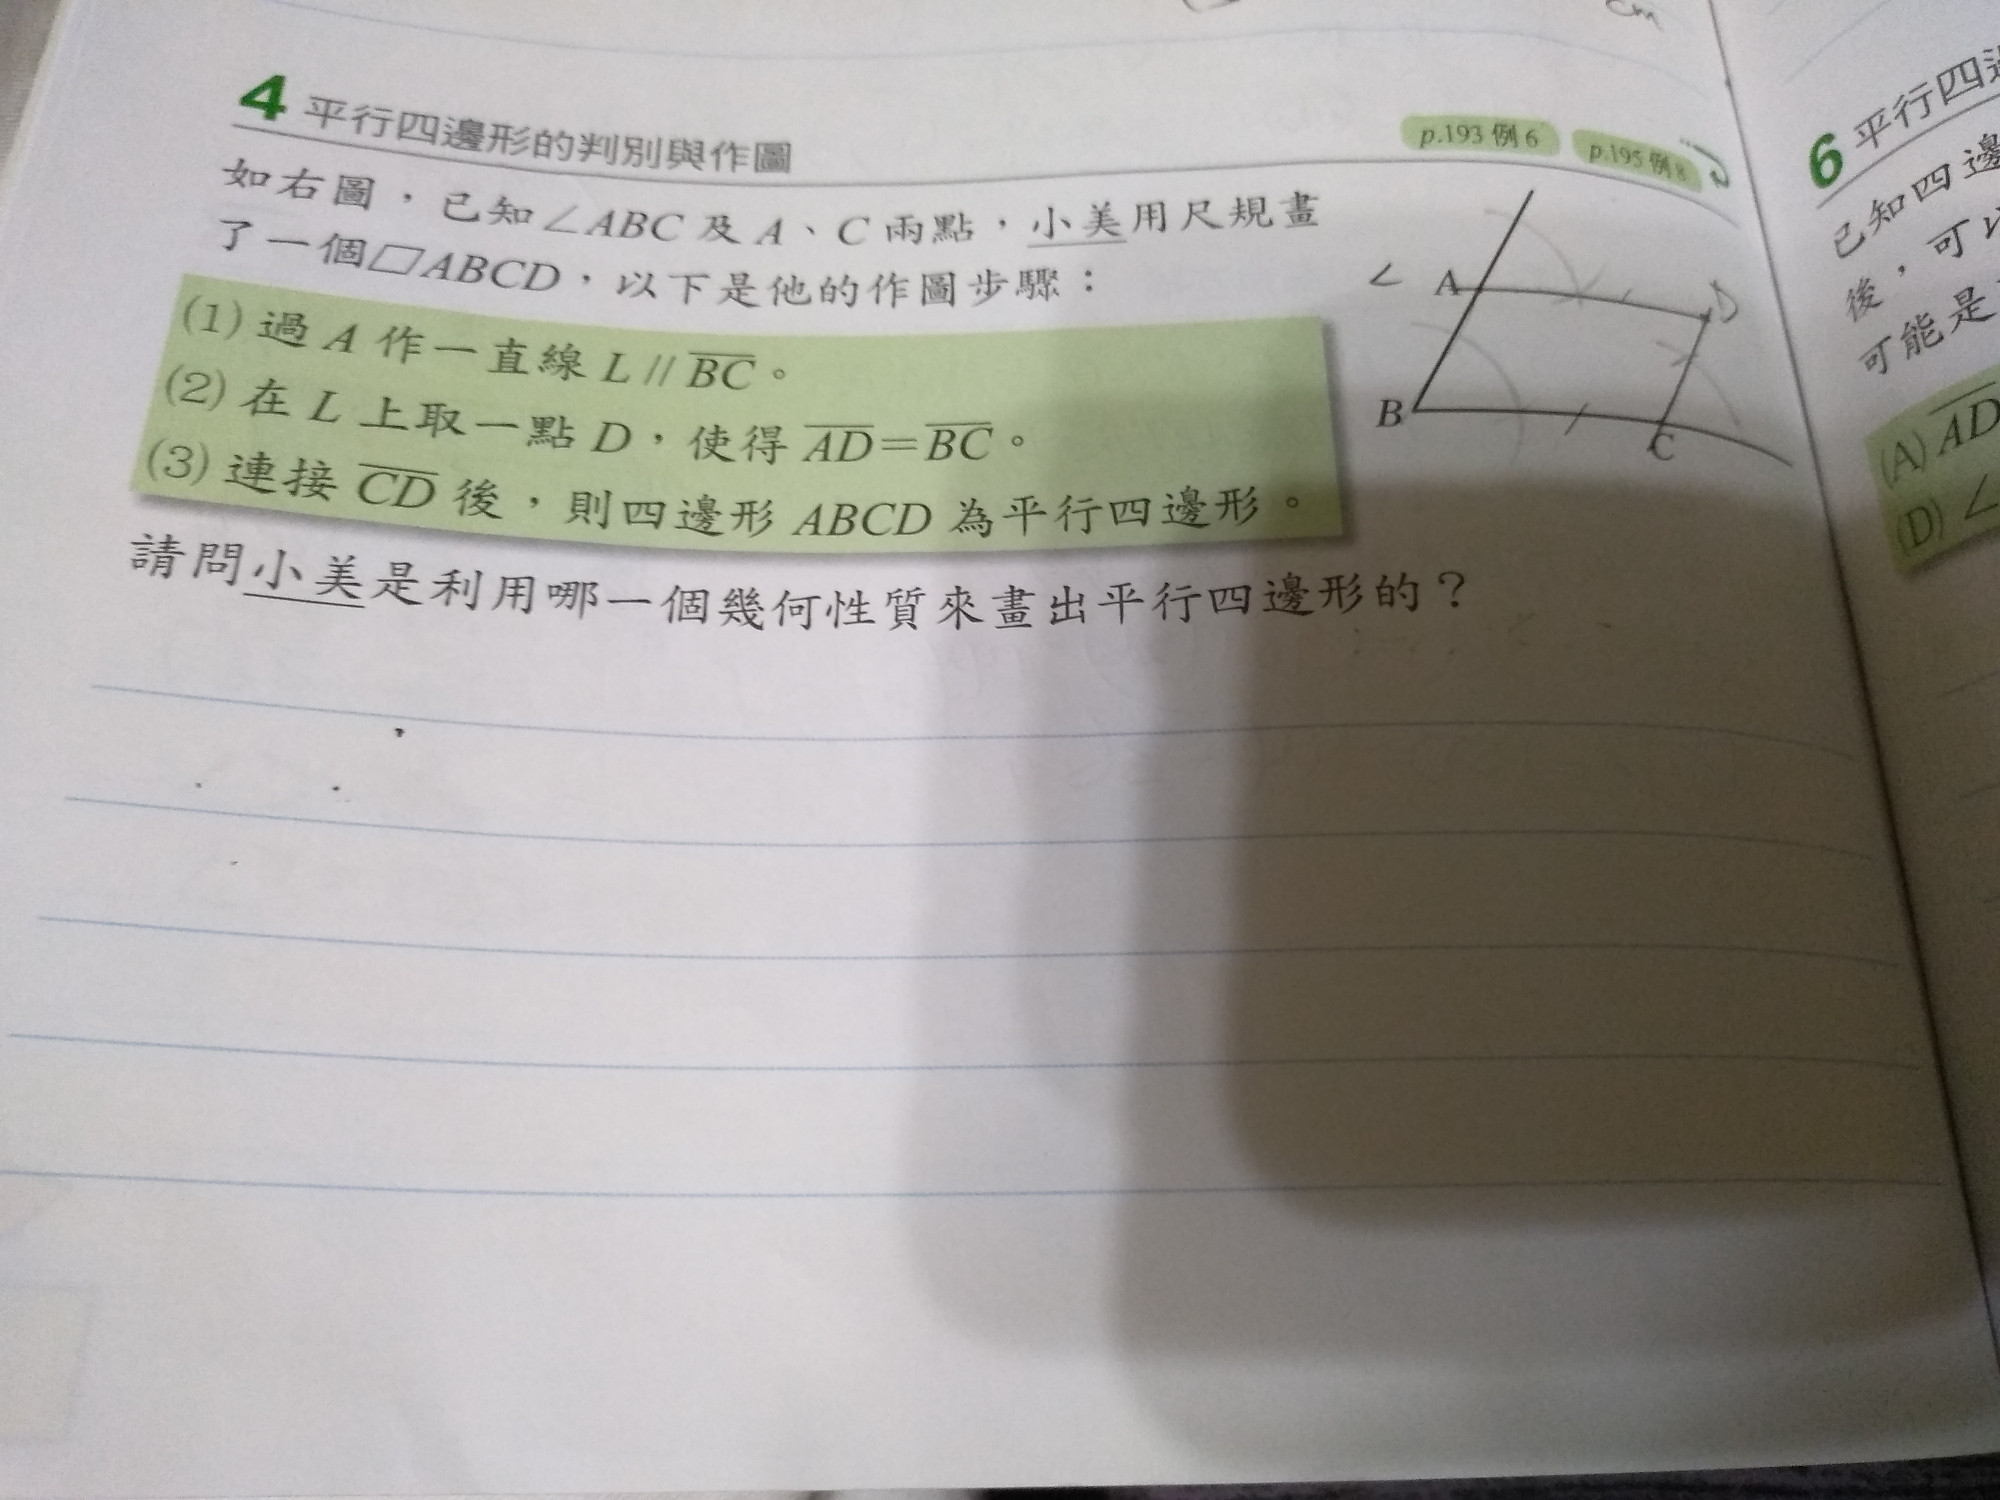 cm
4 平行四邊形的判別與作圖
p.193 例 6 p.195 例 8
如右圖，已知∠ABC 及 A、C 兩點，小美用尺規畫
了一個▱ABCD，以下是他的作圖步驟：
(1) 過 A 作一直線 L // B̅C̅。
(2) 在 L 上取一點 D，使得 A̅D̅＝B̅C̅。
(3) 連接 C̅D̅ 後，則四邊形 ABCD 為平行四邊形。
請問小美是利用哪一個幾何性質來畫出平行四邊形的？
∠ A D
B C
6 平行四邊
已知四邊
後，可以
可能是
(A) A̅D̅
(D) ∠